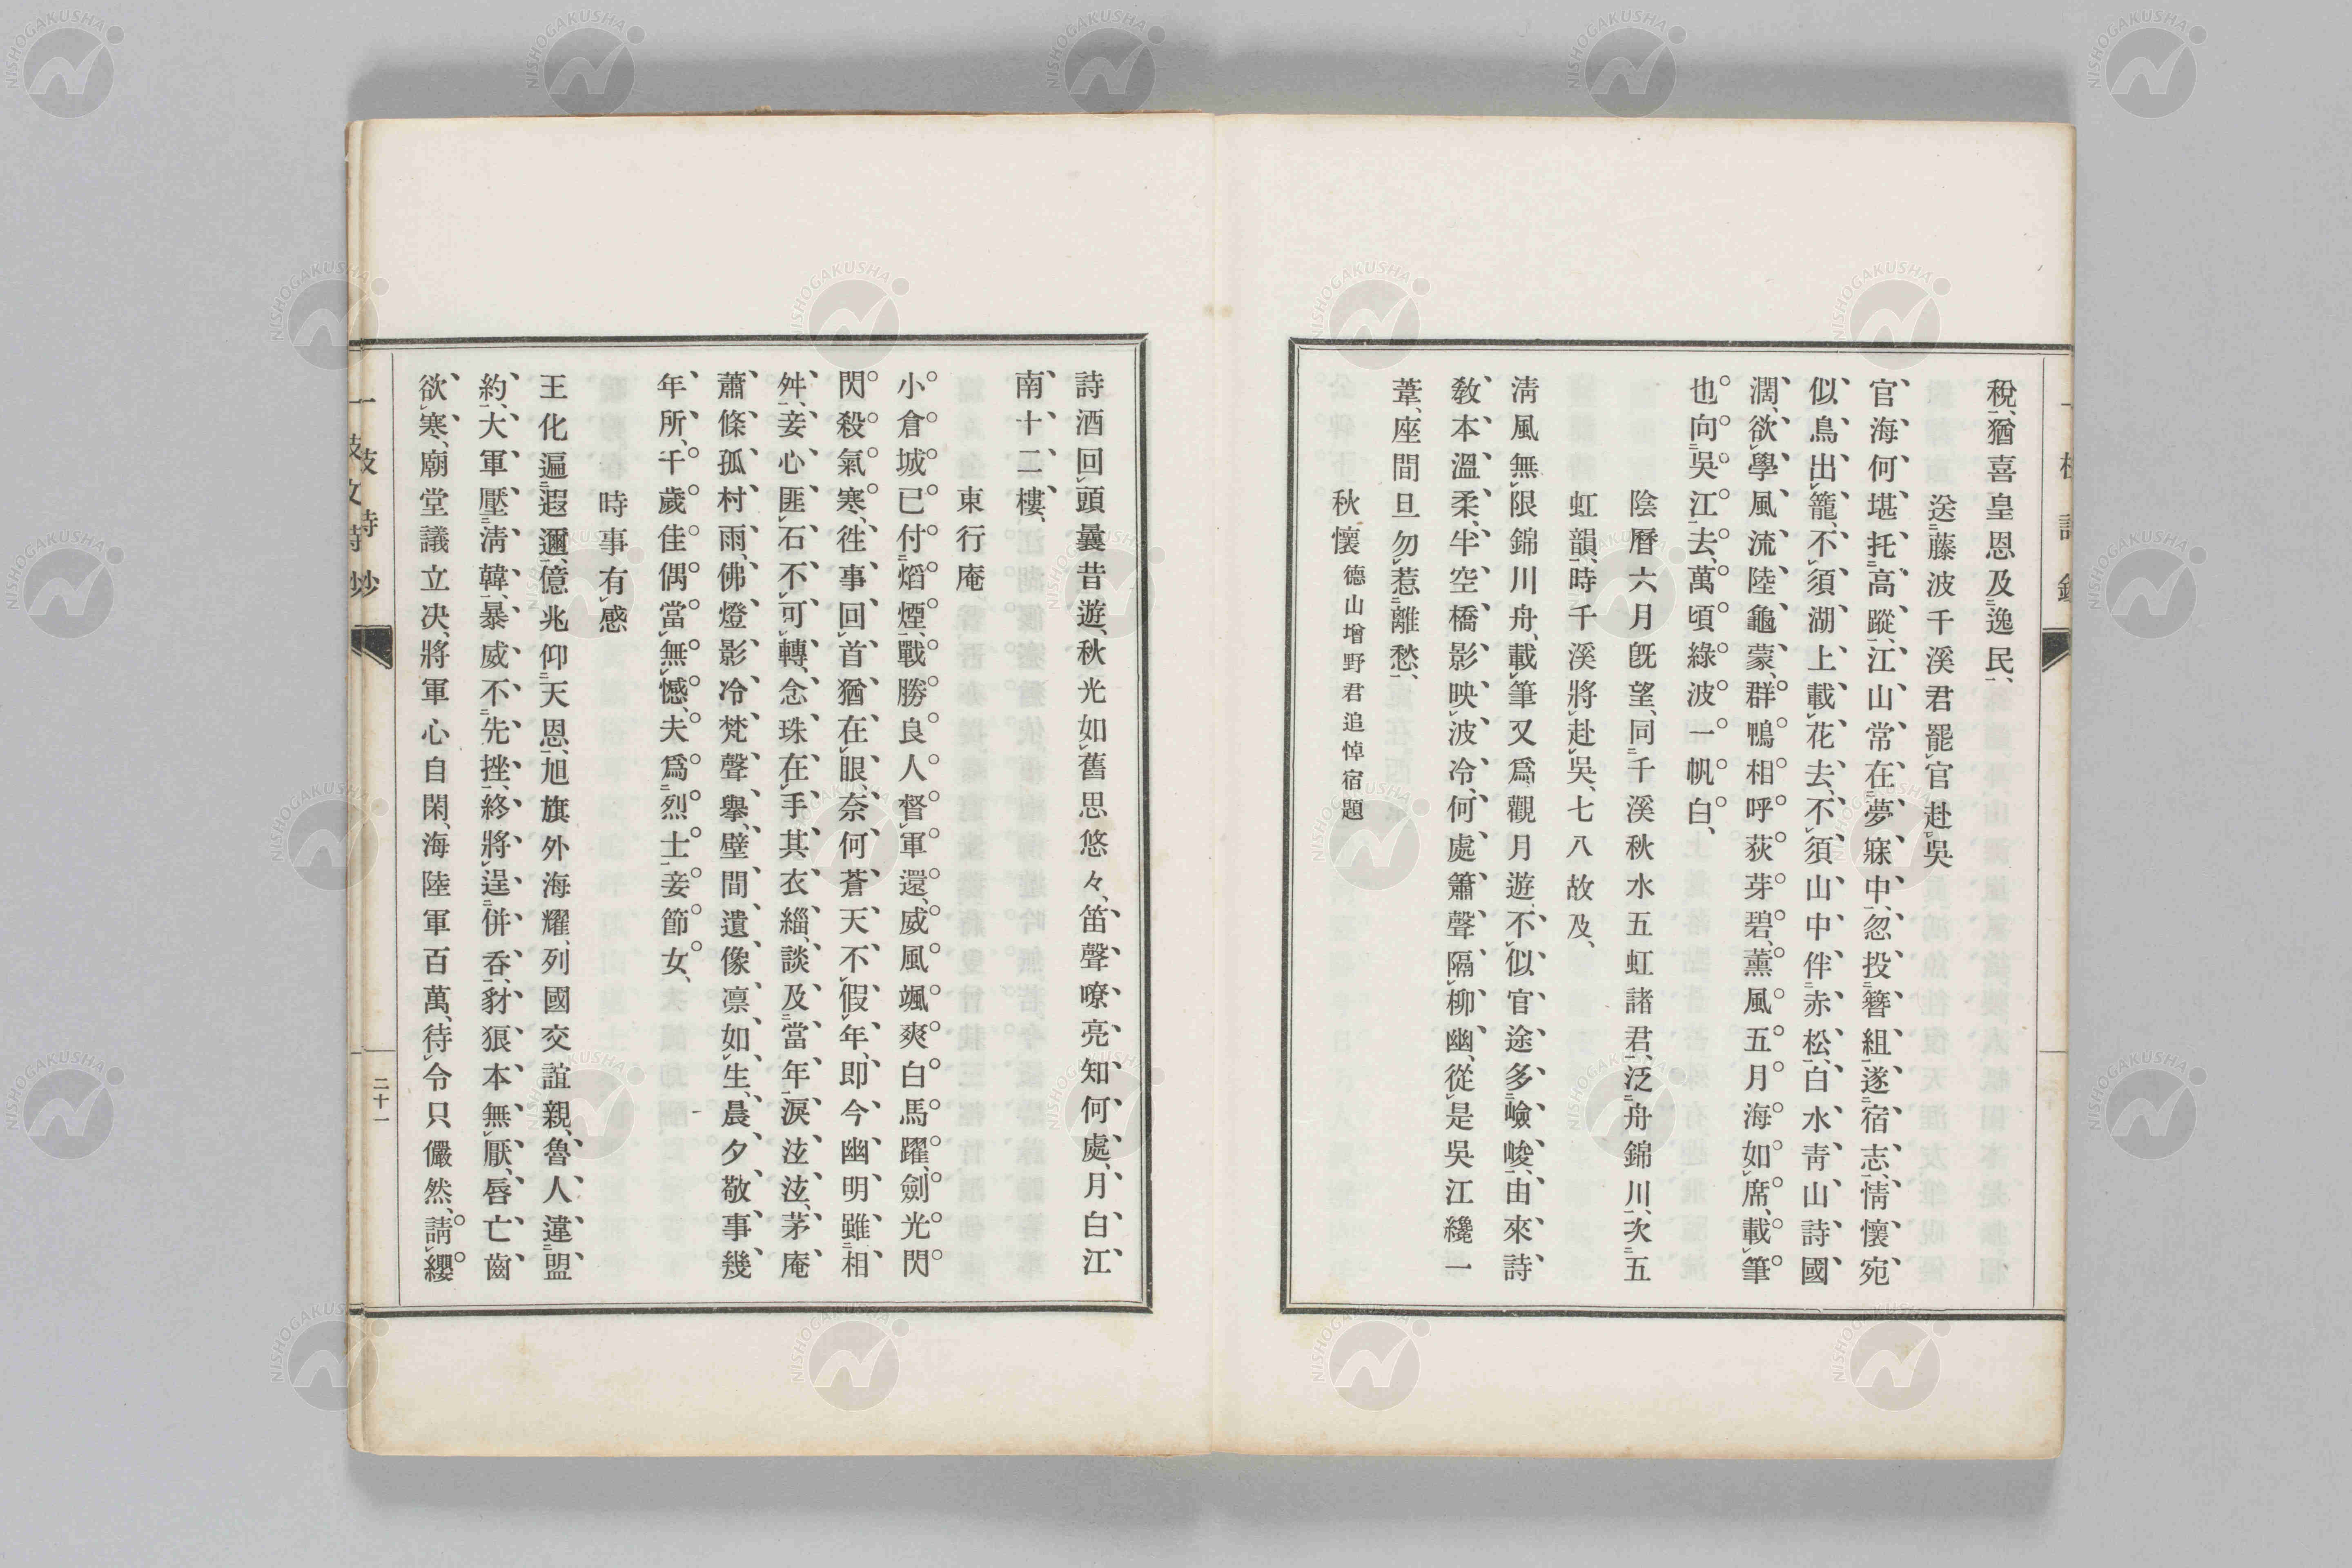 稅、猶喜皇恩及逸民、
送藤波千溪君罷官赴吳
官海何堪托高蹤、江山常在夢寐中、忽投簪組遂宿志、情懷宛
似鳥出籠、不須湖上載花去、不須山中伴赤松、白水靑山詩國
濶、欲學風流陸龜蒙、群鴨相呼荻芽碧、薰風五月海如席、載筆
也向吳江去、萬頃綠波一帆白、
陰曆六月旣望、同千溪秋水五虹諸君、泛舟錦川、次五
虹韻、時千溪將赴吳、七八故及、
淸風無限錦川舟、載筆又爲觀月遊、不似官途多嶮峻、由來詩
敎本溫柔、牛空橋影映波冷、何處簫聲隔柳幽、從是吳江纔一
葦、座間旦勿惹離愁、
秋懷 德山增野君追悼宿題
詩酒回頭曩昔遊、秋光如舊思悠々、笛聲嘹亮知何處、月白江
南十二樓、
東行庵
小倉城已付熖煙、戰勝良人督軍還、威風颯爽白馬躍、劍光閃
閃殺氣寒、徃事回首猶在眼、奈何蒼天不假年、卽今幽明雖相
舛、妾心匪石不可轉、念珠在手其衣緇、談及當年淚泫泫、茅庵
蕭條孤村雨、佛燈影冷梵聲擧、壁間遺像凛如生、晨夕敬事幾
年所、千歲佳偶當無憾、夫爲烈士妾節女、
時事有感
王化遍遐邇、億兆仰天恩、旭旗外海耀、列國交誼親、魯人違盟
約、大軍壓淸韓、暴威不先挫、終將逞併呑、豺狼本無厭、唇亡齒
欲寒、廟堂議立決、將軍心自閑、海陸軍百萬、待令只儼然、請纓
二十一